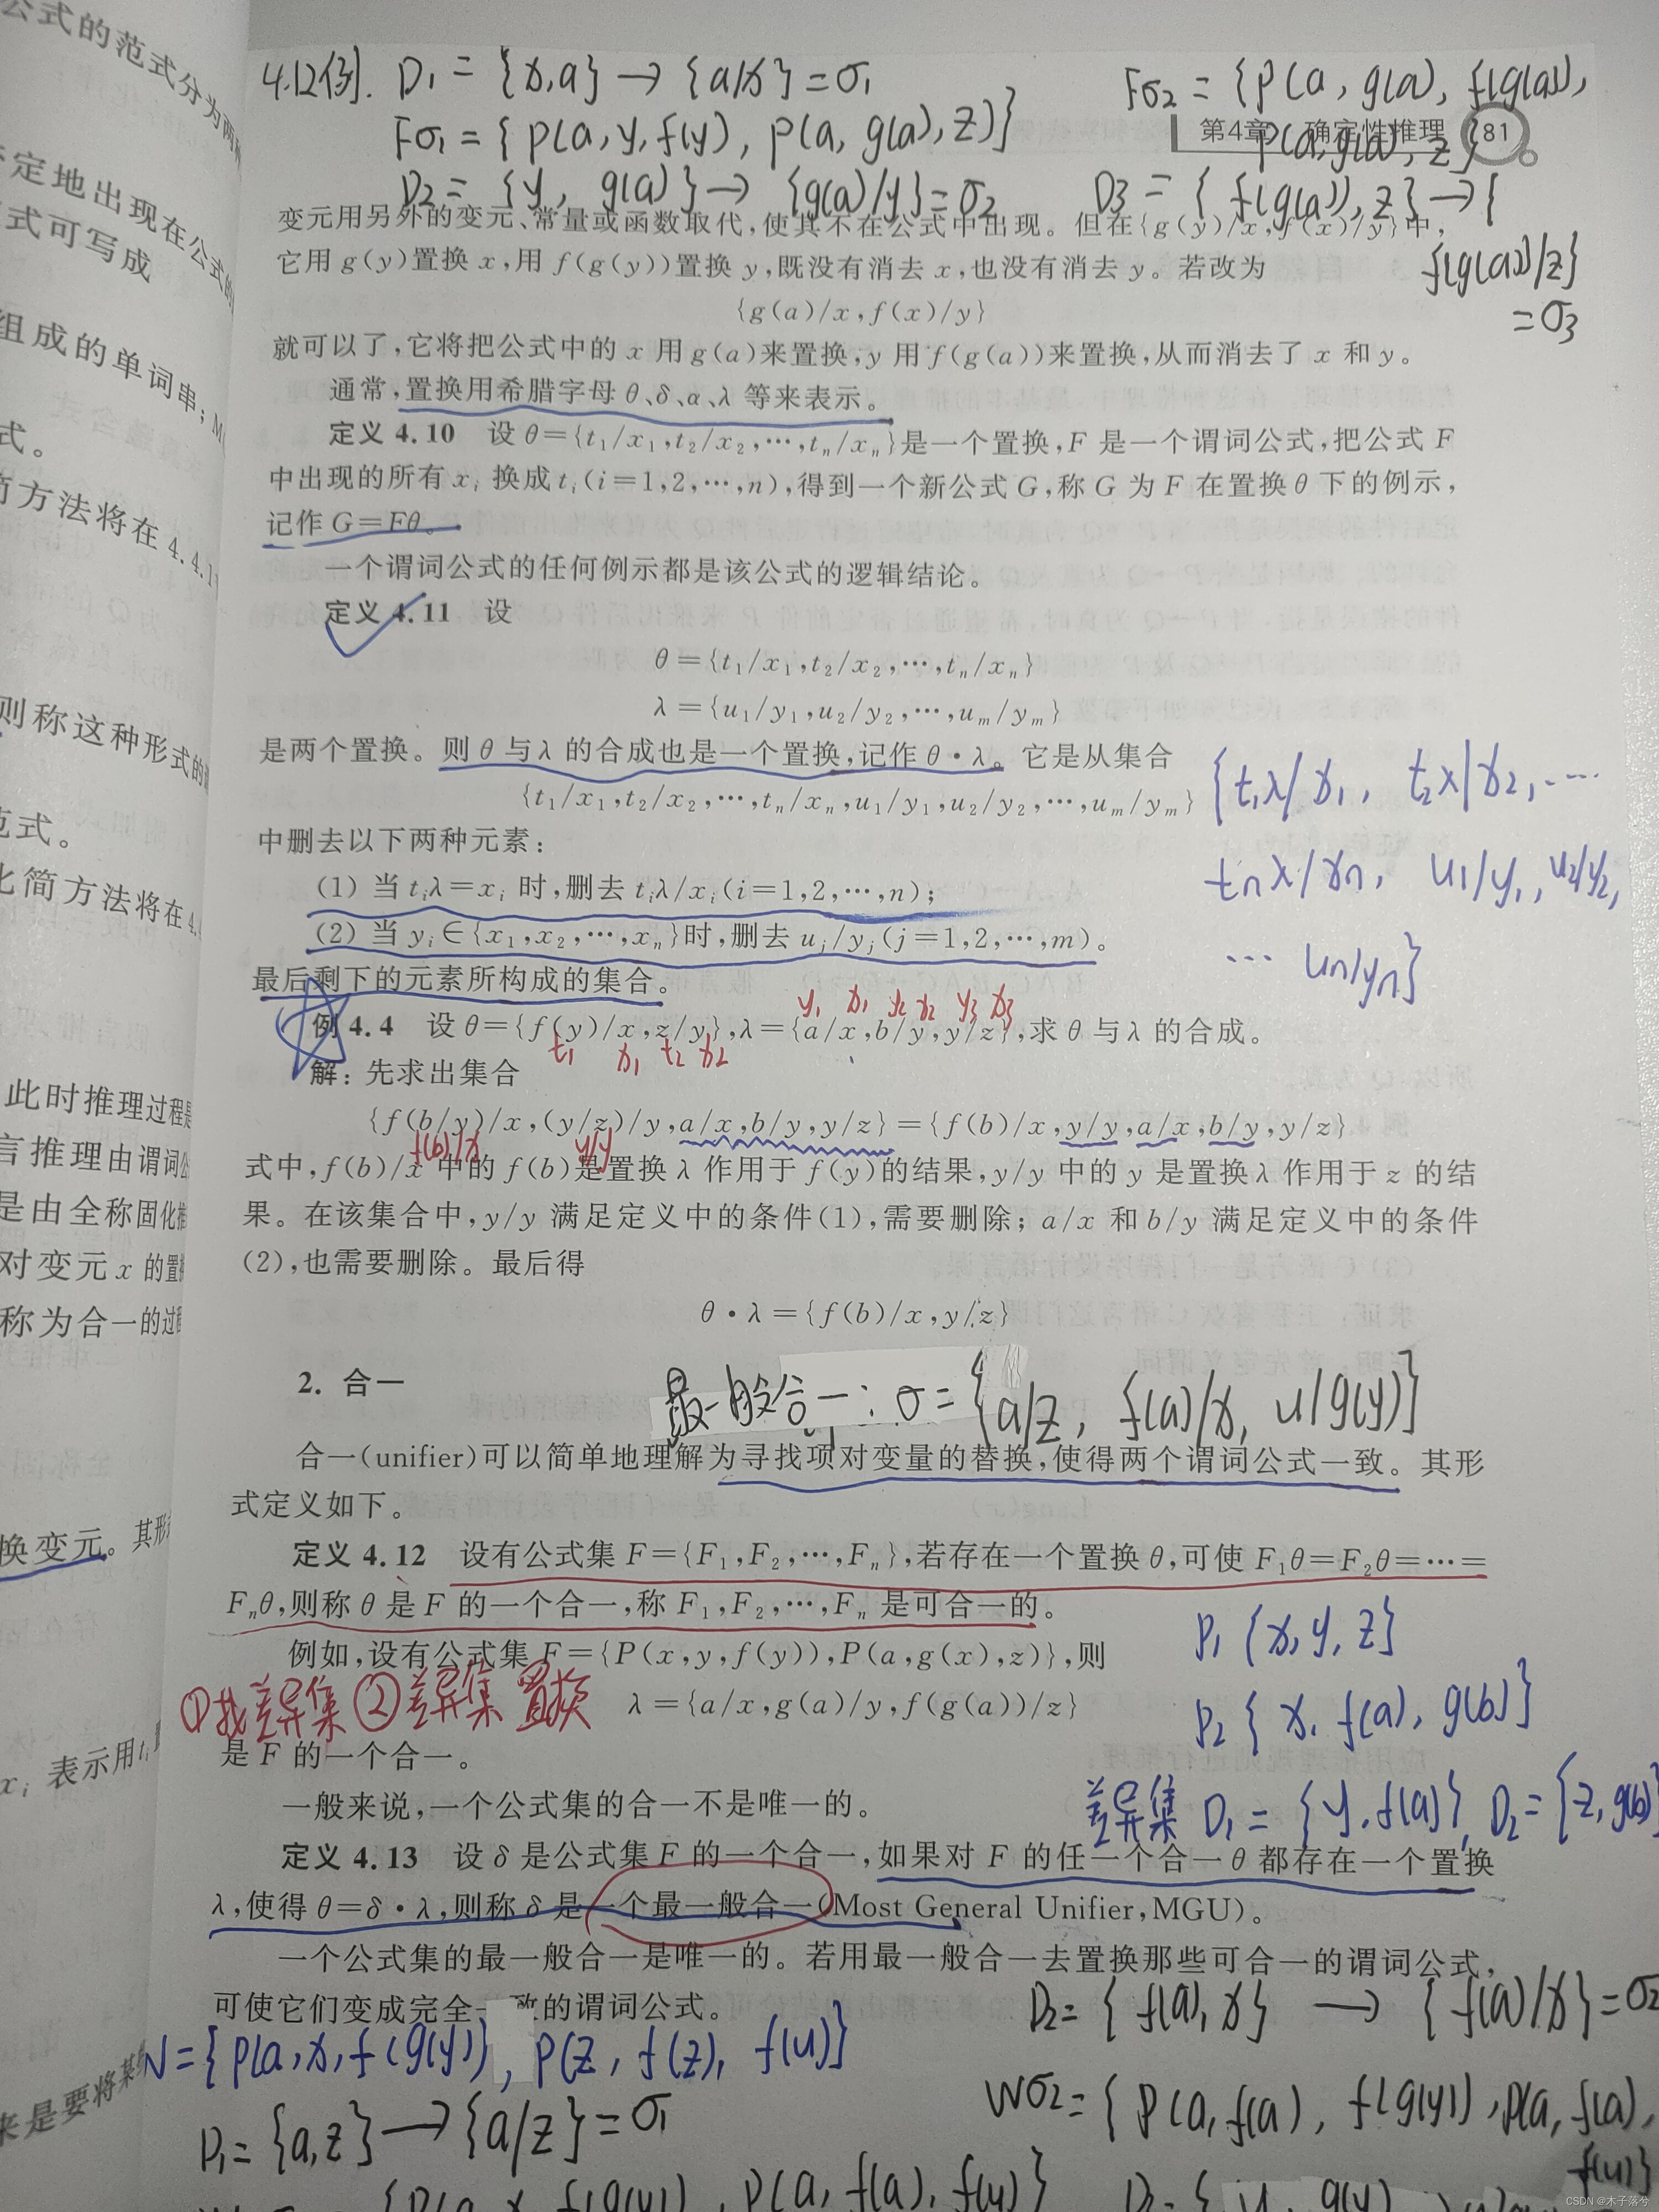 4.12例. D₁ = {x,a} → {a/x} = σ₁
Fσ₁ = { P(a,y,f(y), P(a,g(a),z)}
D₂ = {y, g(a)} → {g(a)/y} = σ₂
Fσ₂ = {P(a, g(a), f(g(a)),
P(a,g(a),z}
D₃ = { f(g(a)), z} → {
f(g(a))/z}
= σ₃
第4章 确定性推理 81
变元用另外的变元、常量或函数取代,使其不在公式中出现。但在{g(y)/x,f(x)/y}中,
它用 g(y)置换 x,用 f(g(y))置换 y,既没有消去 x,也没有消去 y。若改为
{g(a)/x,f(x)/y}
就可以了,它将把公式中的 x 用 g(a)来置换,y 用 f(g(a))来置换,从而消去了 x 和 y。
通常,置换用希腊字母 θ、δ、α、λ 等来表示。
定义 4.10 设 θ={t₁/x₁,t₂/x₂,…,tₙ/xₙ}是一个置换,F 是一个谓词公式,把公式 F
中出现的所有 xᵢ 换成 tᵢ(i=1,2,…,n),得到一个新公式 G,称 G 为 F 在置换 θ 下的例示,
记作 G=Fθ。
一个谓词公式的任何例示都是该公式的逻辑结论。
定义 4.11 设
θ={t₁/x₁,t₂/x₂,…,tₙ/xₙ}
λ={u₁/y₁,u₂/y₂,…,uₘ/yₘ}
是两个置换。则 θ 与 λ 的合成也是一个置换,记作 θ·λ。它是从集合
{t₁/x₁,t₂/x₂,…,tₙ/xₙ,u₁/y₁,u₂/y₂,…,uₘ/yₘ}
{t₁λ/x₁, t₂λ/x₂,…
tnλ/xn, u₁/y₁, u₂/y₂,
… un/yn}
中删去以下两种元素:
(1) 当 tᵢλ=xᵢ 时,删去 tᵢλ/xᵢ(i=1,2,…,n);
(2) 当 yᵢ∈{x₁,x₂,…,xₙ}时,删去 uⱼ/yⱼ(j=1,2,…,m)。
最后剩下的元素所构成的集合。
y₁ x₁ y₂ x₂ y₃ x₃
例 4.4 设 θ={f(y)/x,z/y},λ={a/x,b/y,y/z},求 θ 与 λ 的合成。
t₁ x₁ t₂ x₂
解:先求出集合
{f(b/y)/x,(y/z)/y,a/x,b/y,y/z}={f(b)/x,y/y,a/x,b/y,y/z}
f(b)/x y/y
式中,f(b)/x 中的 f(b)是置换 λ 作用于 f(y)的结果,y/y 中的 y 是置换 λ 作用于 z 的结
果。在该集合中,y/y 满足定义中的条件(1),需要删除;a/x 和 b/y 满足定义中的条件
(2),也需要删除。最后得
θ·λ={f(b)/x,y/z}
2. 合一
最一般合一:σ={a/z, f(a)/x, u/g(y)}
合一(unifier)可以简单地理解为寻找项对变量的替换,使得两个谓词公式一致。其形
式定义如下。
定义 4.12 设有公式集 F={F₁,F₂,…,Fₙ},若存在一个置换 θ,可使 F₁θ=F₂θ=…=
Fₙθ,则称 θ 是 F 的一个合一,称 F₁,F₂,…,Fₙ 是可合一的。
例如,设有公式集 F={P(x,y,f(y)),P(a,g(x),z)},则
P₁ {x,y,z}
①找差异集 ②差异集 置换
λ={a/x,g(a)/y,f(g(a))/z}
P₂ { x, f(a), g(b)}
是 F 的一个合一。
一般来说,一个公式集的合一不是唯一的。
差异集 D₁ = {y, f(a)}, D₂ = {z, g(b)
定义 4.13 设 δ 是公式集 F 的一个合一,如果对 F 的任一个合一 θ 都存在一个置换
λ,使得 θ=δ·λ,则称 δ 是一个最一般合一(Most General Unifier,MGU)。
一个公式集的最一般合一是唯一的。若用最一般合一去置换那些可合一的谓词公式,
可使它们变成完全一致的谓词公式。
W={P(a,x,f(g(y)), P(z, f(z), f(u)}
D₁= {a,z} → {a/z} = σ₁
D₂= { f(a), x} → { f(a)/x} = σ₂
Wσ₂= { P(a,f(a), f(g(y)), P(a, f(a),
f(u)}
公式的范式分为两
定地出现在公式的
式可写成
组成的单词串;M
式。
方法将在 4.4.1
则称这种形式的
范式。
化简方法将在 4.
此时推理过程是
言推理由谓词公
是由全称固化推
对变元 x 的置换
称为合一的过程
换变元。其形
xᵢ 表示用 tᵢ
来是要将某
CSDN @木子落兮